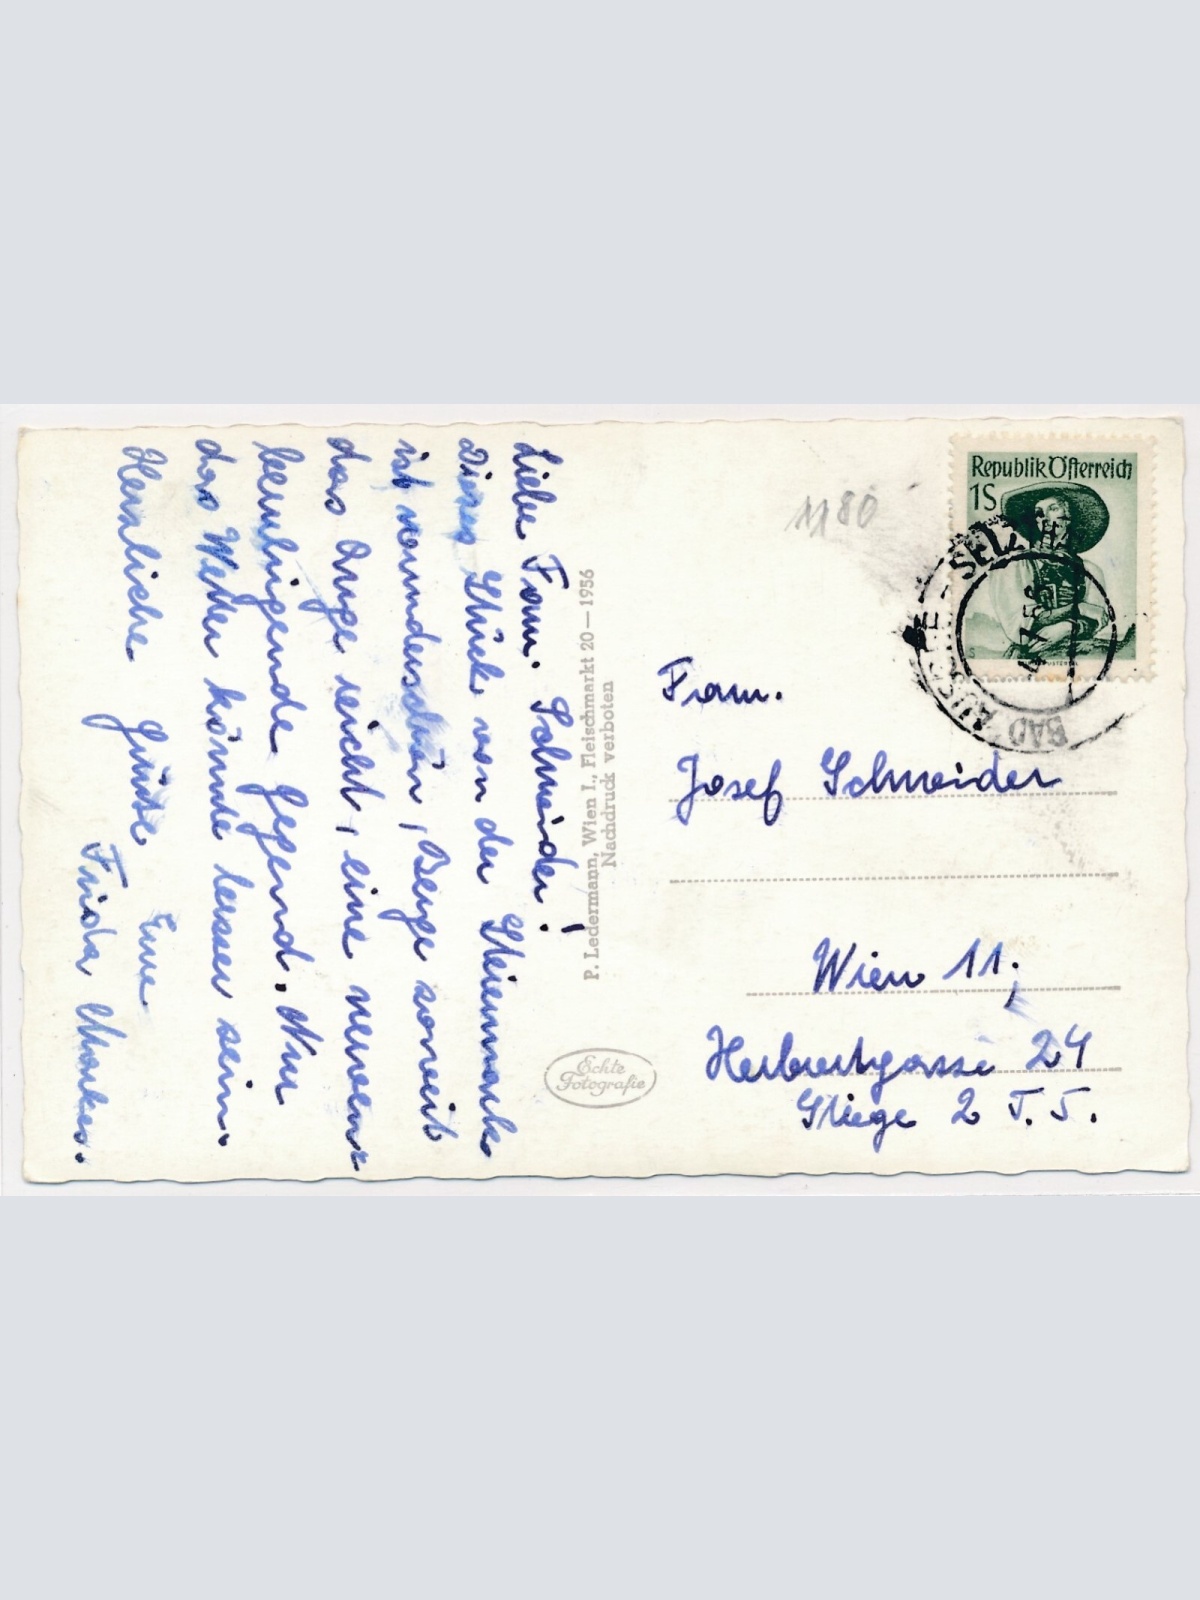 Liebe Fam. Schneider!
Dieses Stück von der Steiermark
ist wunderschön, Berge soweit
das Auge reicht, eine nerven-
beruhigende Gegend. Nur
das Wetter könnte besser sein.
Herzliche Grüße Eure
Frida
P. Ledermann, Wien I., Fleischmarkt 20—1956
Nachdruck verboten
Echte
Fotografie
1180
Republik Österreich
1S
BAD AUSSEE - SELZTHAL
7.56
Fam.
Josef Schneider
Wien 11,
Herbortgasse 24
Stiege 2 T. 5.